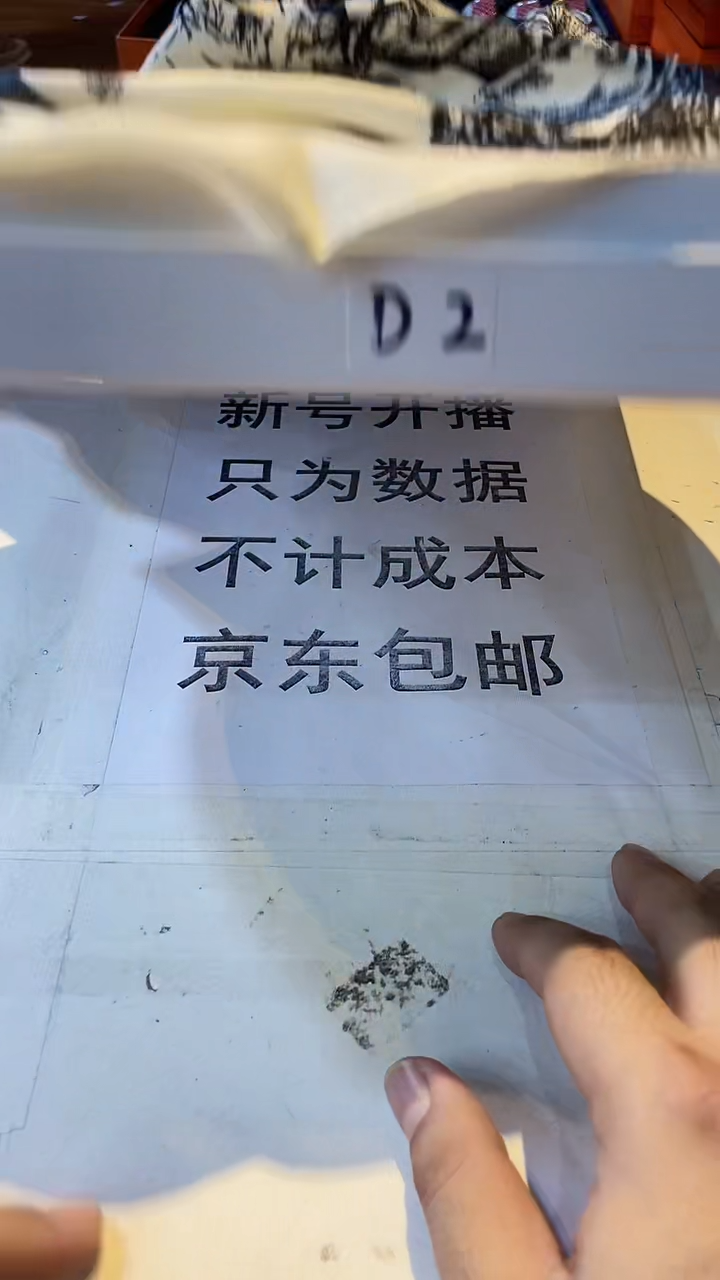 D 2
新号开播
只为数据
不计成本
京东包邮